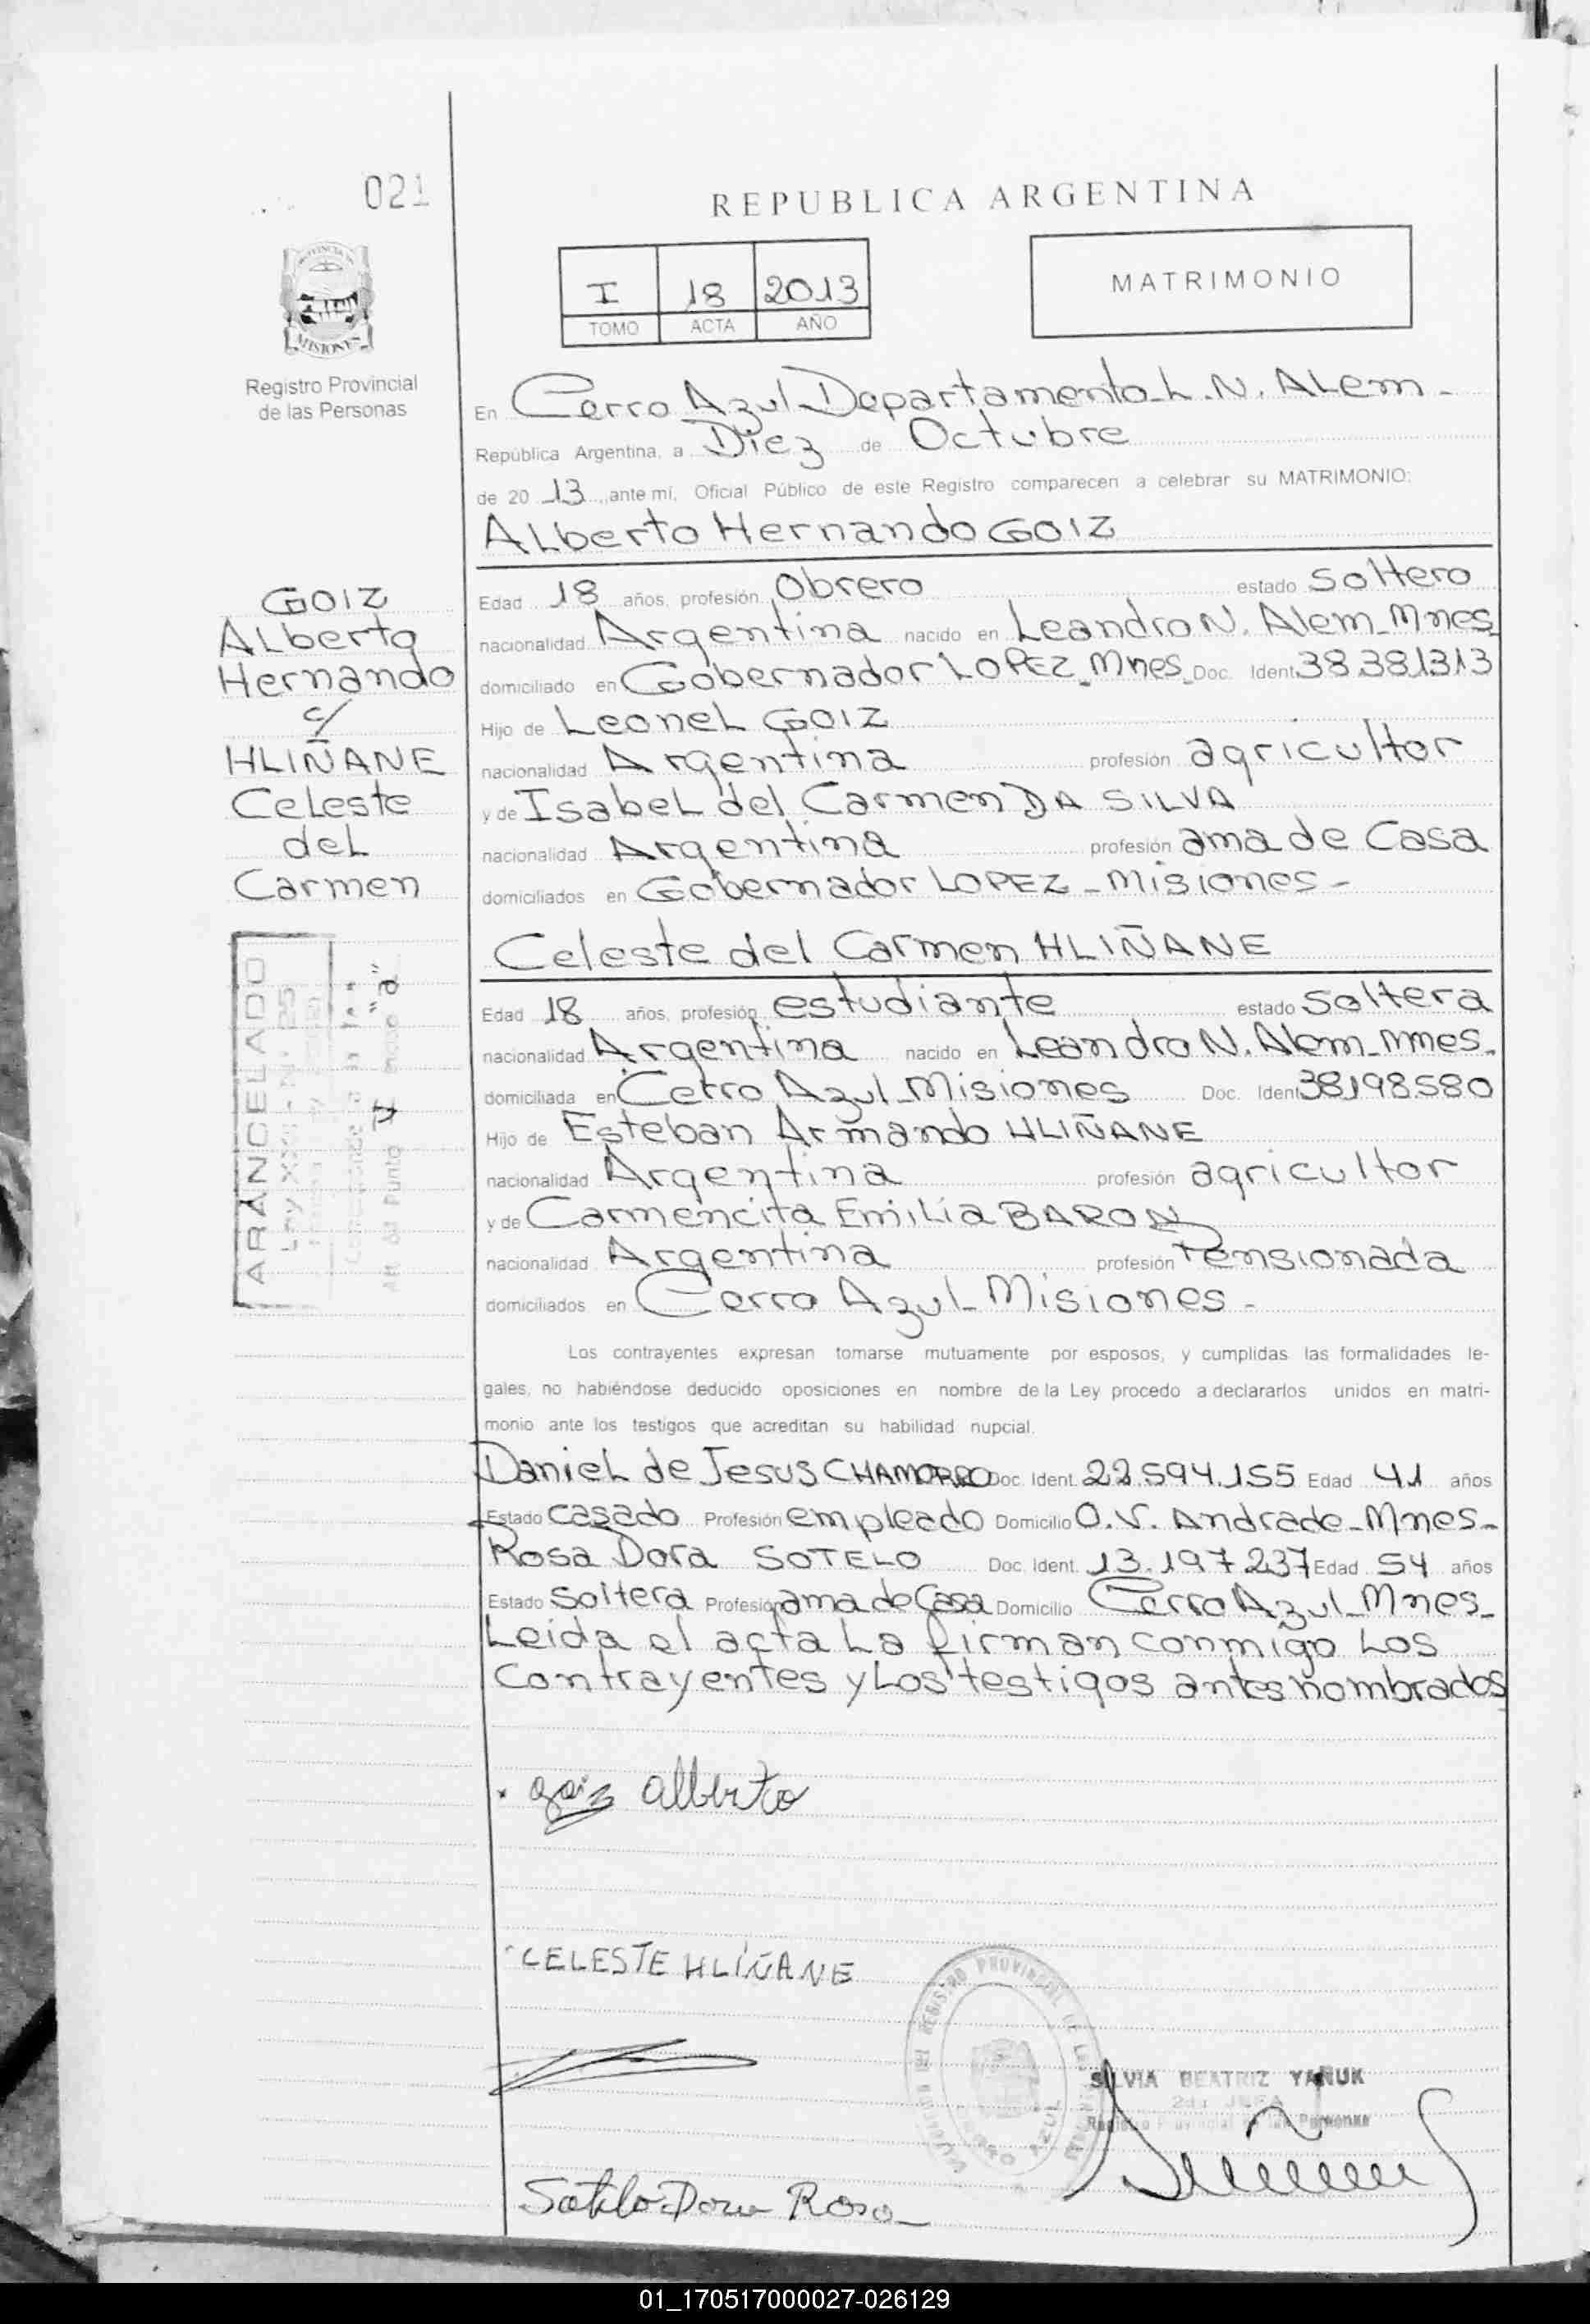 021
REPUBLICA ARGENTINA
I 18 2013
TOMO ACTA AÑO
MATRIMONIO
MISIONES
Registro Provincial
de las Personas
En Cerro Azul Departamento L. N. Alem -
República Argentina, a Diez de Octubre
de 20 13 ,ante mí, Oficial Público de este Registro comparecen a celebrar su MATRIMONIO:
Alberto Hernando GOIZ
GOIZ
Alberto
Hernando
c/
HLIÑANE
Celeste
del
Carmen
Edad 18 años, profesión Obrero estado Soltero
nacionalidad Argentina nacido en Leandro N. Alem - Mnes
domiciliado en Gobernador LOPEZ - Mnes - Doc. Ident. 38.381.313
Hijo de Leonel GOIZ
nacionalidad Argentina profesión agricultor
y de Isabel del Carmen DA SILVA
nacionalidad Argentina profesión ama de Casa
domiciliados en Gobernador LOPEZ - Misiones -
Celeste del Carmen HLIÑANE
ARANCELADO
Edad 18 años, profesión estudiante estado Soltera
nacionalidad Argentina nacido en Leandro N. Alem - Mnes.
domiciliada en Cerro Azul - Misiones Doc. Ident. 38.198.580
Hijo de Esteban Armando HLIÑANE
nacionalidad Argentina profesión agricultor
y de Carmencita Emilia BARON
nacionalidad Argentina profesión Pensionada
domiciliados en Cerro Azul - Misiones -
Los contrayentes expresan tomarse mutuamente por esposos, y cumplidas las formalidades le-
gales, no habiéndose deducido oposiciones en nombre de la Ley procedo a declararlos unidos en matri-
monio ante los testigos que acreditan su habilidad nupcial.
Daniel de Jesus CHAMORRO Doc. Ident. 22.594.155 Edad 41 años
Estado Casado Profesión empleado Domicilio O. V. Andrade - Mnes -
Rosa Dora SOTELO Doc. Ident. 13.197.237 Edad 54 años
Estado Soltera Profesión ama de Casa Domicilio Cerro Azul - Mnes -
Leida el acta la firman conmigo los
Contrayentes y los testigos antes nombrados
goiz alberto
CELESTE HLIÑANE
REGISTRO PROVINCIAL DE LAS
CERRO AZUL
SILVIA BEATRIZ YAÑUK
2da JEFA
Registro Provincial de las Personas
Sotelo Dora Rosa
01_170517000027-026129